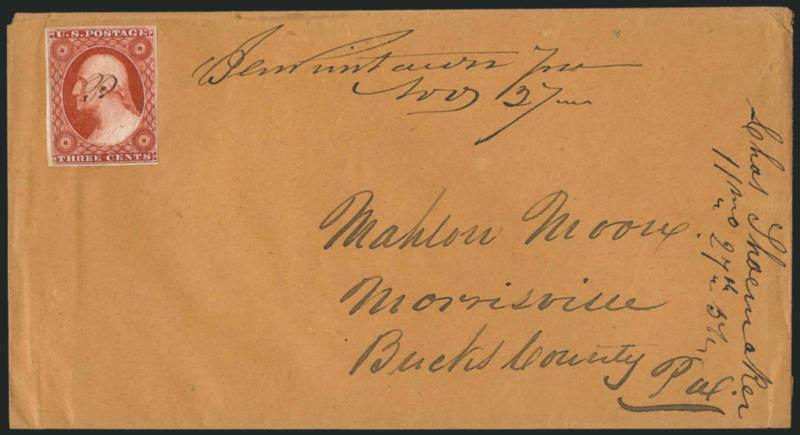 U.S. POSTAGE
THREE CENTS
B
Nov 27
Mahlon Moon.
Morrisville
Bucks County
Pa.
Chas Shoemaker
11 mo 27th